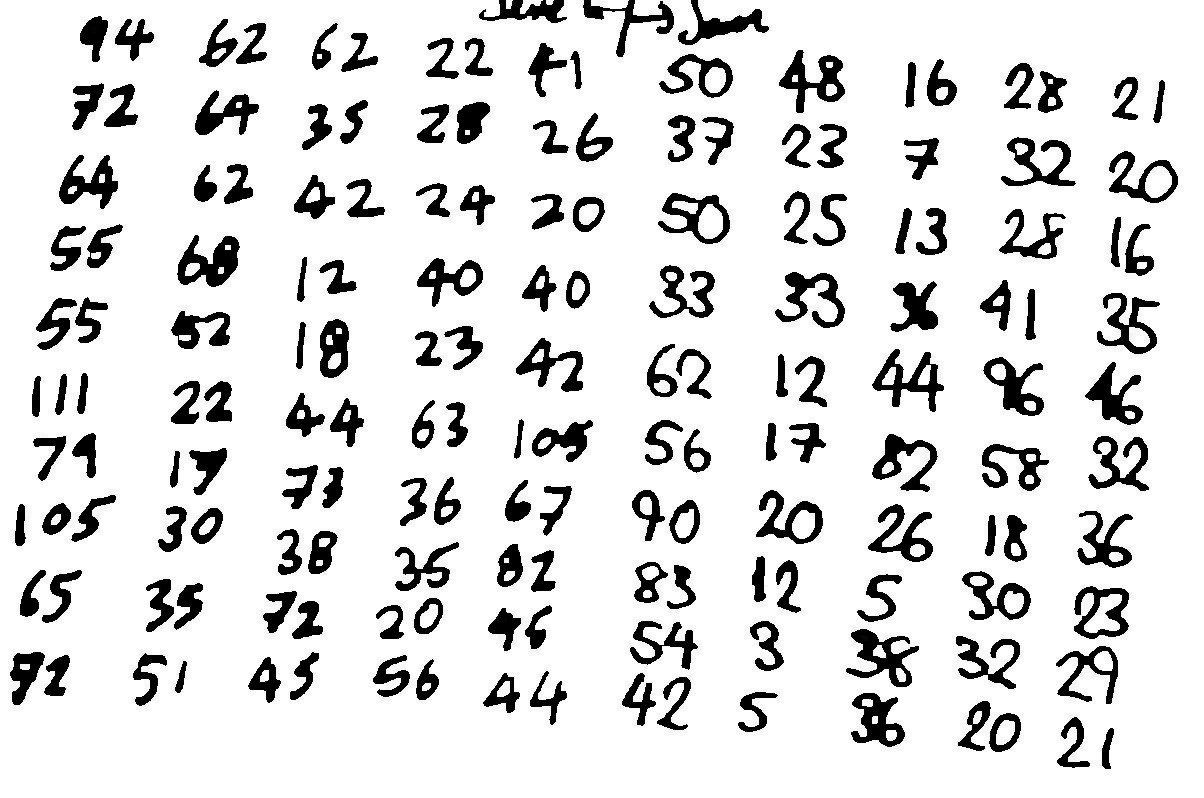 94 62 62 22 41 50 48 16 28 21
72 64 35 28 26 37 23 7 32 20
64 62 42 24 20 50 25 13 28 16
55 68 12 40 40 33 33 36 41 35
55 52 18 23 42 62 12 44 96 46
111 22 44 63 105 56 17 82 58 32
79 17 73 36 67 90 20 26 18 36
105 30 38 35 82 83 12 5 30 23
65 35 72 20 46 54 3 38 32 29
72 51 45 56 44 42 5 36 20 21